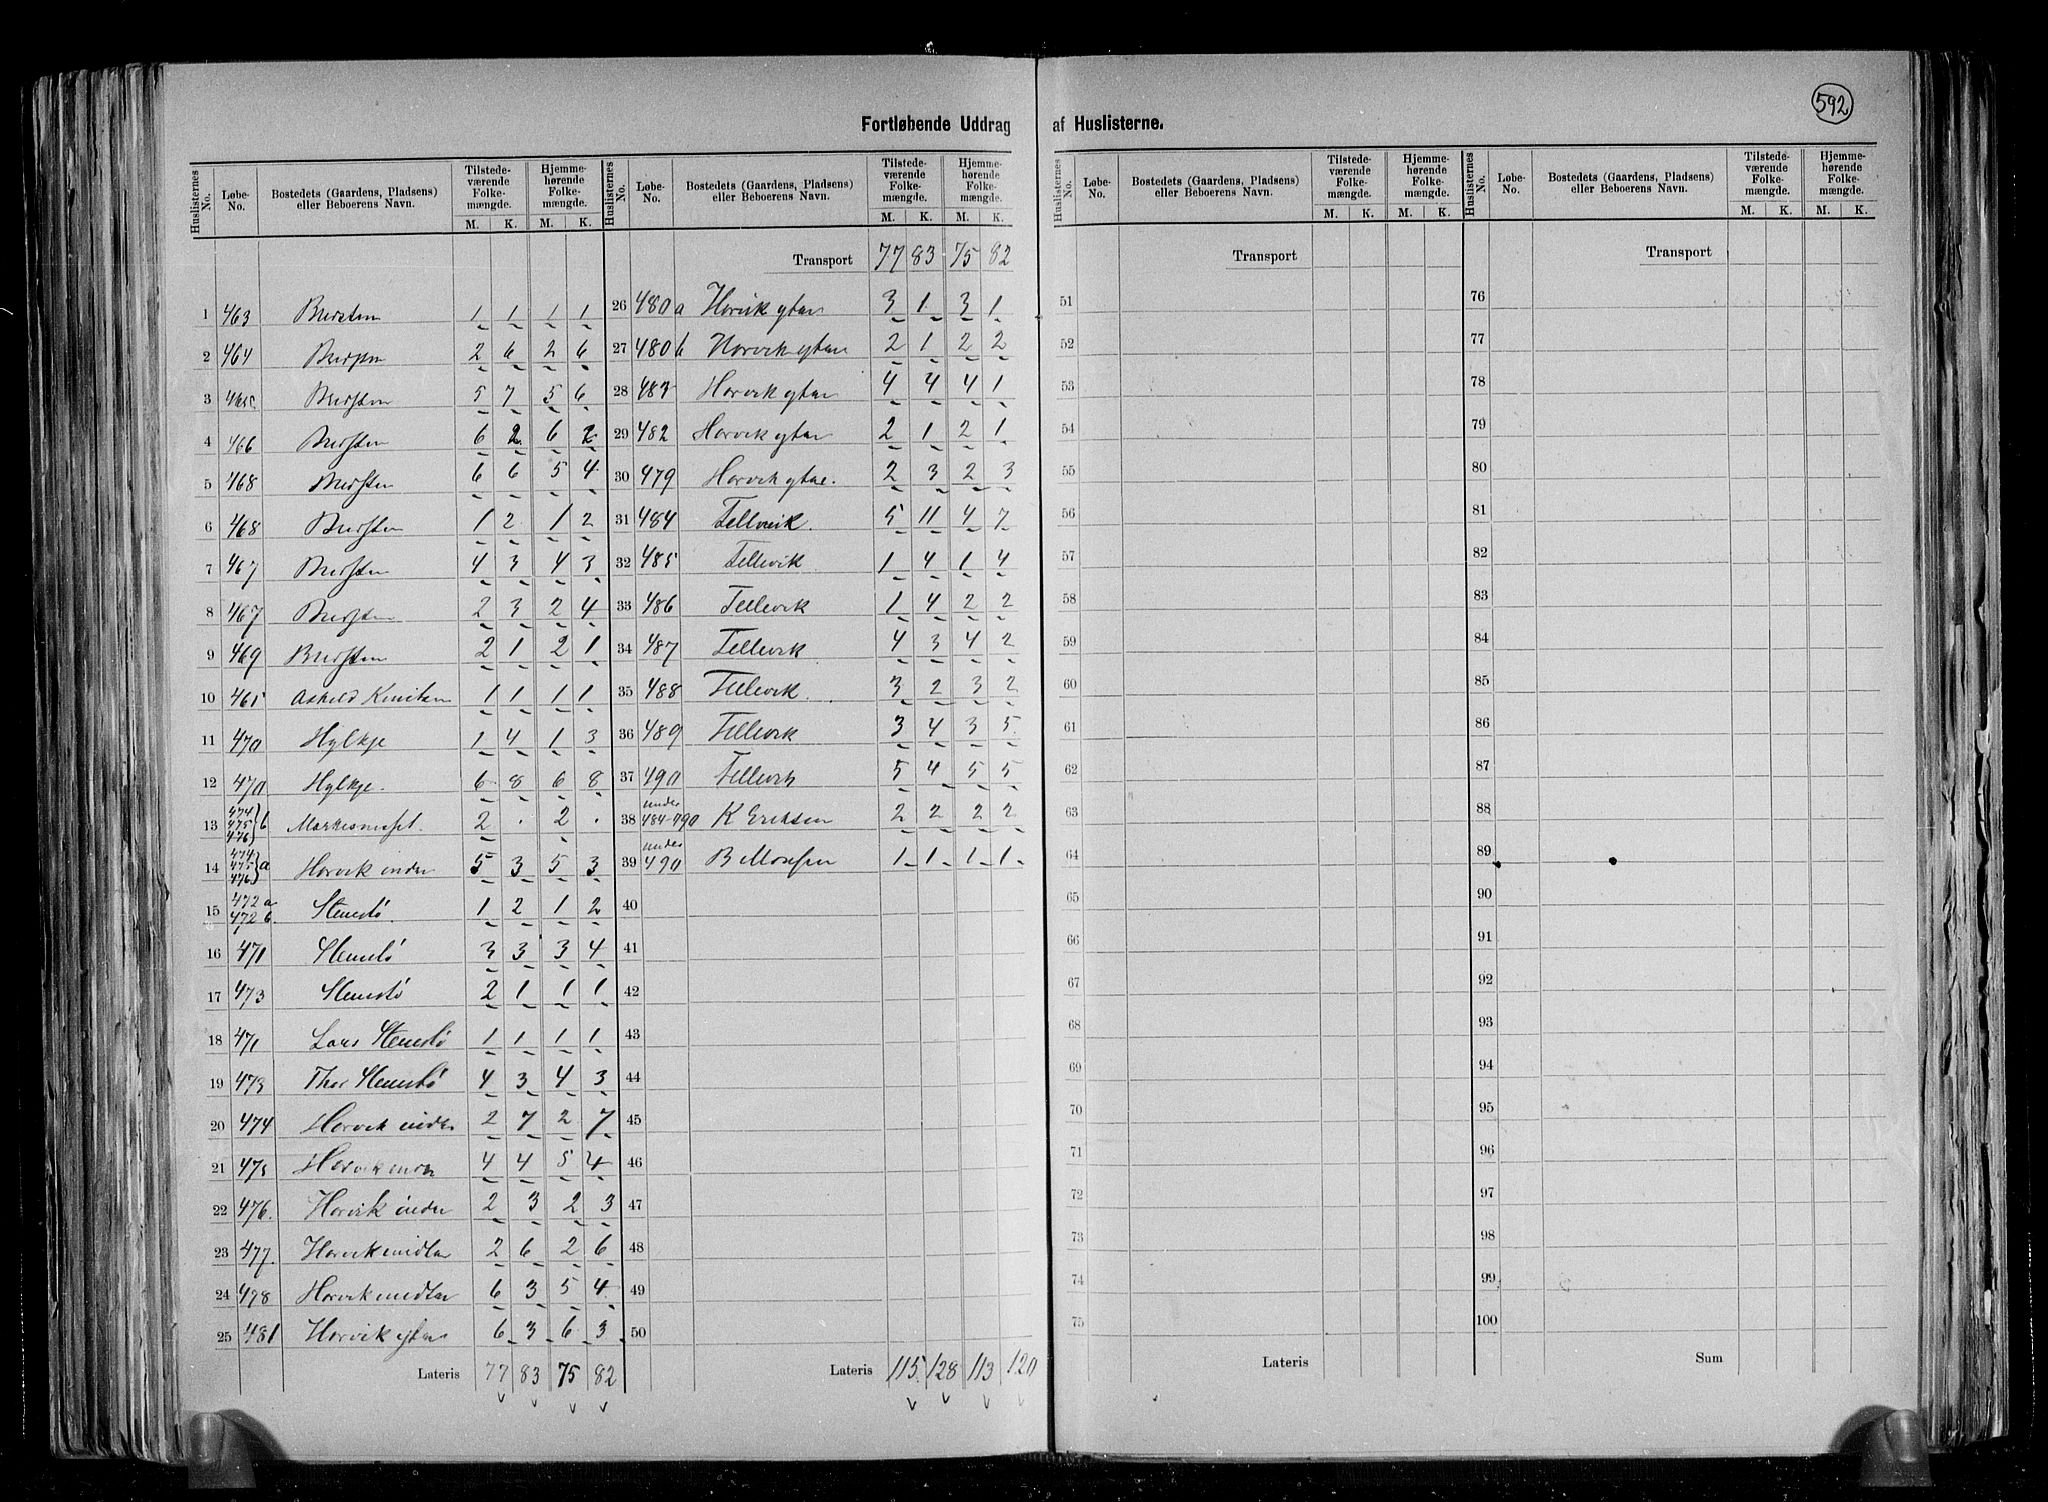 592
Fortløbende Uddrag af Huslisterne.
Huslisternes No. Løbe-No. Bostedets (Gaardens, Pladsens) eller Beboerens Navn. Tilstedeværende Folkemængde. M. K. Hjemmehørende Folkemængde. M. K.
1 463 1 1 1 1
2 464 2 6 2 6
3 465 5 7 5 6
4 466 6 2 6 2
5 468 6 6 5 4
6 468 1 2 1 2
7 467 4 3 4 3
8 467 2 3 2 4
9 469 2 1 2 1
10 465 1 1 1 1
11 470 Hylkje 1 4 1 3
12 470 Hylkje. 6 8 6 8
13 474 475 476 } b 2 . 2 .
14 474 475 476 } a Horvik inder 5 3 5 3
15 472 a 472 b. Stenstø. 1 2 1 2
16 471 Stenstø 3 3 3 4
17 473 Stenstø 2 1 1 1
18 471 Lars Stenstø 1 1 1 1
19 473 Thor Stenstø 4 3 4 3
20 474 Horvik inder 2 7 2 7
21 475 Horvik inder 4 4 5 4
22 476. Horvik inder 2 3 2 3
23 477. Horvik midtar 2 6 2 6
24 478 Horvik midtar 6 3 5 4
25 481 Horvik ytar 6 3 6 3
Lateris 77 83 75 82
Huslisternes No. Løbe-No. Bostedets (Gaardens, Pladsens) eller Beboerens Navn. Tilstedeværende Folkemængde. M. K. Hjemmehørende Folkemængde. M. K.
Transport 77 83 75 82
26 480 a Horvik ytar 3 1 3 1
27 480 b Horvik ytar 2 1 2 2
28 483 Horvik ytar 4 4 4 1
29 482 Horvik ytar 2 1 2 1
30 479 Horvik ytar. 2 3 2 3
31 484 Tellevik. 5 11 4 7
32 485 Tellevik 1 4 1 4
33 486 Tellevik 1 4 2 2
34 487 Tellevik 4 3 4 2
35 488 Tellevik. 3 2 3 2
36 489 Tellevik 3 4 3 5
37 490 Tellevik 5 4 5 5
38 under 484-490 K Eriksen 2 2 2 2
39 under 490 B Monsen 1 1 1 1
40
41
42
43
44
45
46
47
48
49
50
Lateris 115 128 113 120
Huslisternes No. Løbe-No. Bostedets (Gaardens, Pladsens) eller Beboerens Navn. Tilstedeværende Folkemængde. M. K. Hjemmehørende Folkemængde. M. K.
Transport
51
52
53
54
55
56
57
58
59
60
61
62
63
64
65
66
67
68
69
70
71
72
73
74
75
Lateris
Huslisternes No. Løbe-No. Bostedets (Gaardens, Pladsens) eller Beboerens Navn. Tilstedeværende Folkemængde. M. K. Hjemmehørende Folkemængde. M. K.
Transport
76
77
78
79
80
81
82
83
84
85
86
87
88
89
90
91
92
93
94
95
96
97
98
99
100
Sum